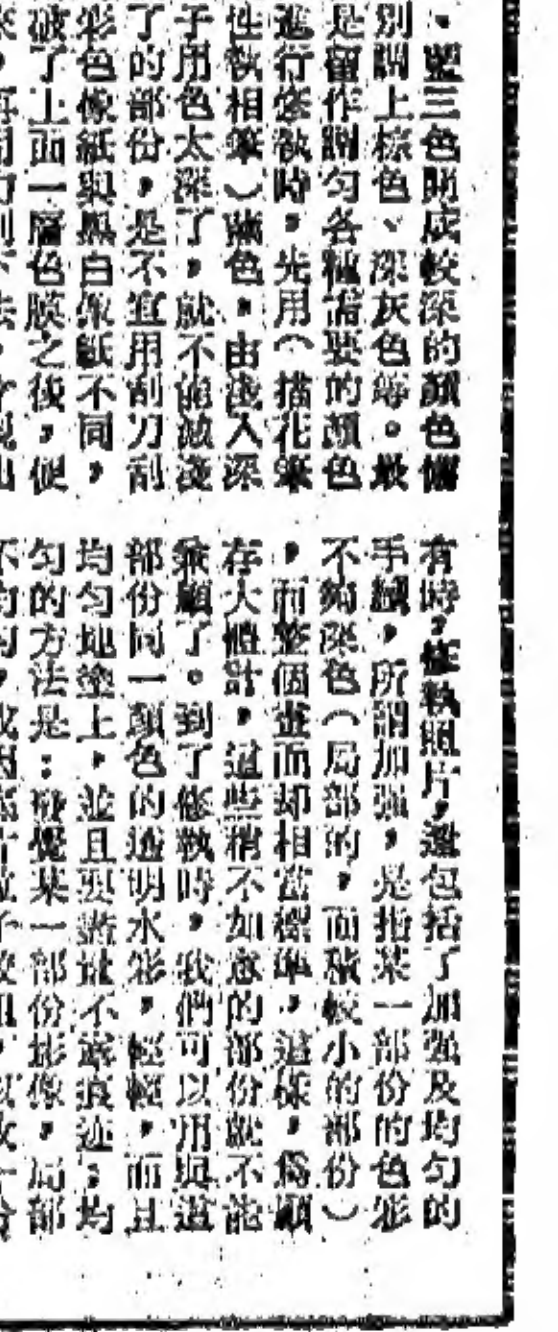 、藍三色開成較深的顏色備
別調上棕色、深灰色等。最
是留作調勻各種需要的顏色
進行修執時,先用(描花筆
性執相筆)蘸色,由淺入深
子用色太深了,就不能減淺
了的部份,是不宜用刮刀刮
彩色像紙與黑白像紙不同,
破了上面一層色膜之後,便
有時,修執照片,還包括了加強及均勻的
手續,所謂加強,是指某一部份的色彩
不夠深色(局部的,面積較小的部份)
,而整個畫面却相當標準,這樣,為顧
存大體計,這些稍不如意的部份就不能
兼顧了。到了修執時,我們可以用與這
部份同一顏色的透明水彩,輕輕,而且
均勻地塗上,並且要儘量不露痕迹;均
勻的方法是:發覺某一部份影像,局部